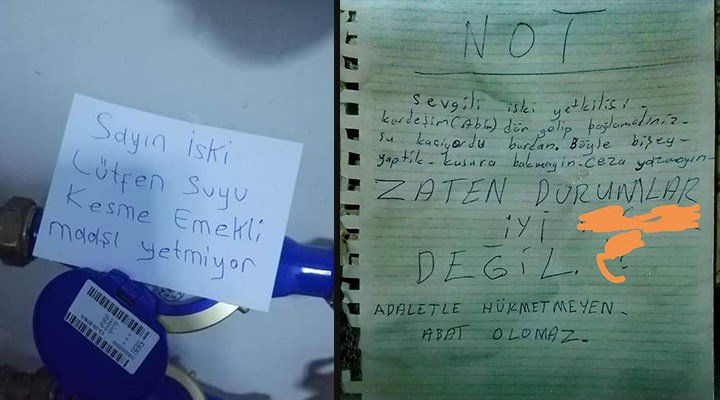 Sayın iski
Lütfen suyu
Kesme Emekli
maaşı yetmiyor
NOT
Sevgili iski yetkilisi.
kardeşim (Abim) dür gelip bağlamadınız
su kaçıyordu burdan. Böyle bişey
yaptık. kusura bakmayın. Ceza yazmayın
ZATEN DURUMLAR
İYİ
DEĞİL. !
ADALETLE HÜKMETMEYEN.
ABAT OLOMAZ.